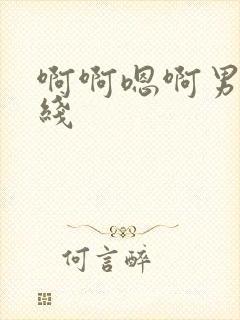 啊啊嗯啊男
綫
何言醉